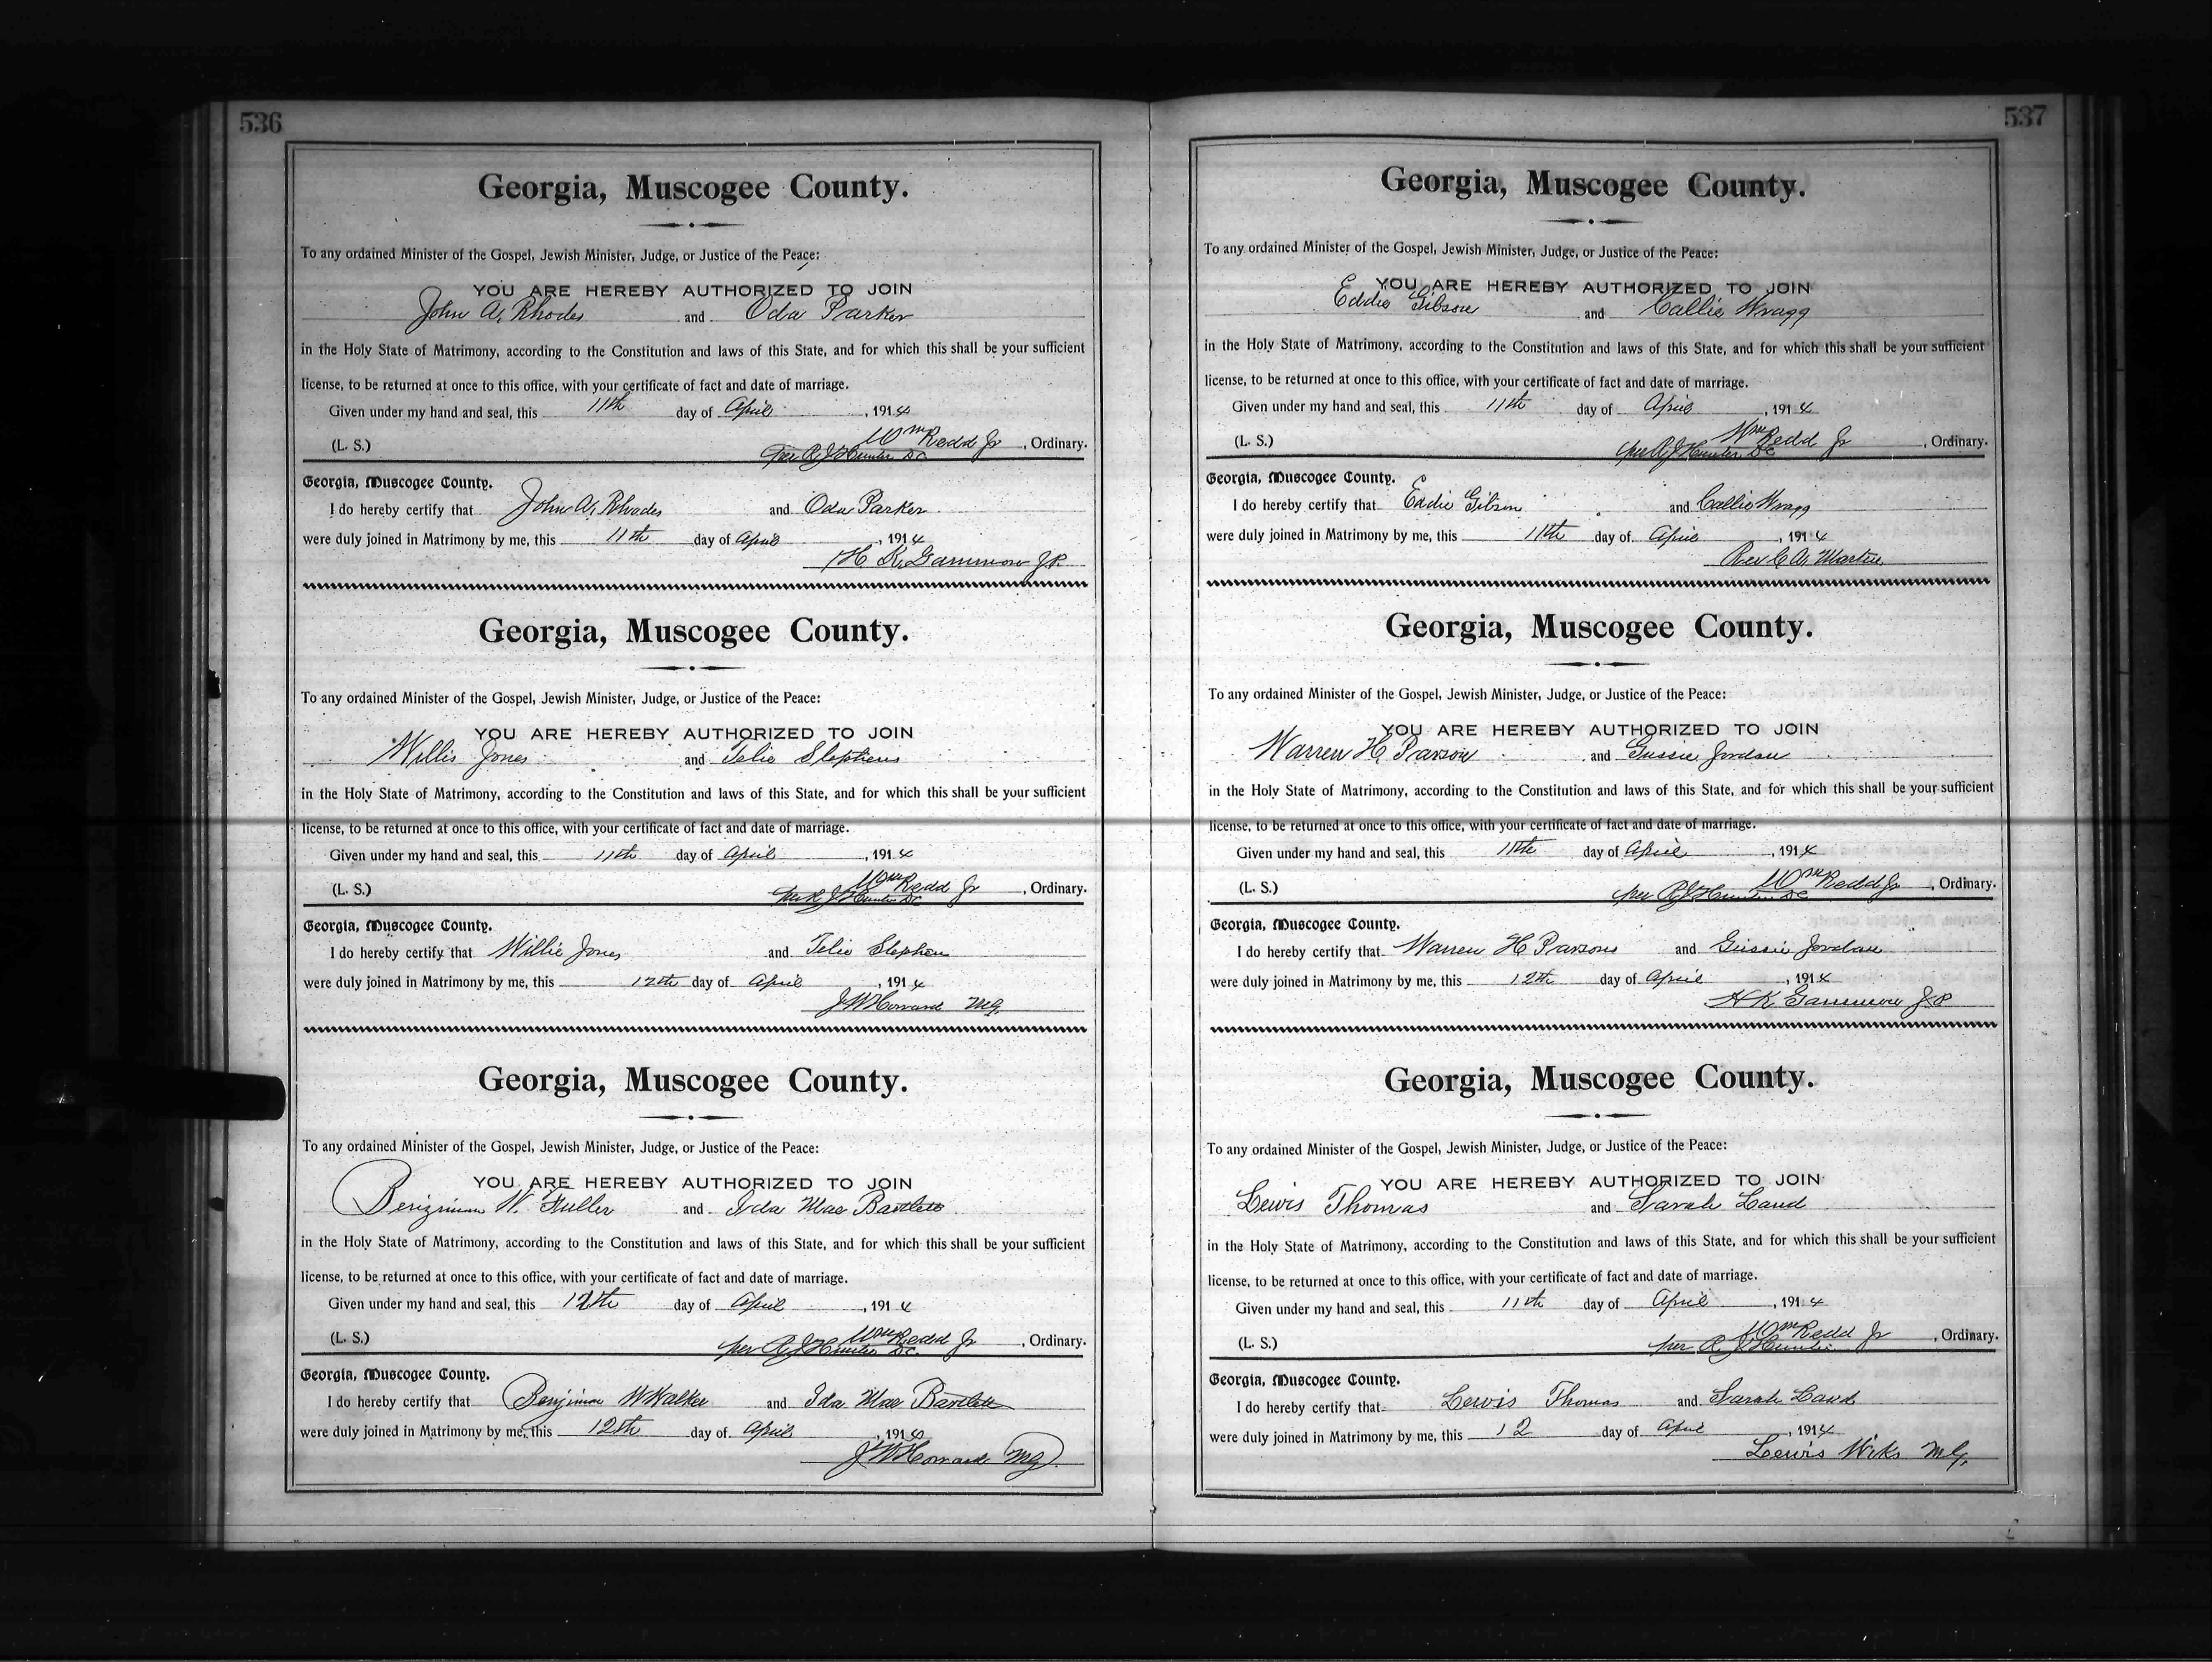 536
Georgia, Muscogee County.
To any ordained Minister of the Gospel, Jewish Minister, Judge, or Justice of the Peace:
YOU ARE HEREBY AUTHORIZED TO JOIN
John A. Rhodes and Oda Parker
in the Holy State of Matrimony, according to the Constitution and laws of this State, and for which this shall be your sufficient
license, to be returned at once to this office, with your certificate of fact and date of marriage.
Given under my hand and seal, this 11th day of April, 1914
(L. S.) Wm Redd Jr, Ordinary.
per R J Hunter DC
Georgia, Muscogee County.
I do hereby certify that John A. Rhodes and Oda Parker
were duly joined in Matrimony by me, this 11th day of April, 1914
H. K. Gammon J.P.
Georgia, Muscogee County.
To any ordained Minister of the Gospel, Jewish Minister, Judge, or Justice of the Peace:
YOU ARE HEREBY AUTHORIZED TO JOIN
Willis Jones and Telie Stephens
in the Holy State of Matrimony, according to the Constitution and laws of this State, and for which this shall be your sufficient
license, to be returned at once to this office, with your certificate of fact and date of marriage.
Given under my hand and seal, this 11th day of April, 1914
(L. S.) Wm Redd Jr, Ordinary.
per R J Hunter DC
Georgia, Muscogee County.
I do hereby certify that Willie Jones and Telie Stephen
were duly joined in Matrimony by me, this 12th day of April, 1914
J W Howard M.G.
Georgia, Muscogee County.
To any ordained Minister of the Gospel, Jewish Minister, Judge, or Justice of the Peace:
YOU ARE HEREBY AUTHORIZED TO JOIN
W. Fuller and Ida Mae Bartlett
in the Holy State of Matrimony, according to the Constitution and laws of this State, and for which this shall be your sufficient
license, to be returned at once to this office, with your certificate of fact and date of marriage.
Given under my hand and seal, this 12th day of April, 1914
(L. S.) Wm Redd Jr, Ordinary.
per R J Hunter DC.
Georgia, Muscogee County.
I do hereby certify that Benjimin W Walker and Ida Mae Bartlett
were duly joined in Matrimony by me, this 12th day of April, 1914
J W Howard M.G.
537
Georgia, Muscogee County.
To any ordained Minister of the Gospel, Jewish Minister, Judge, or Justice of the Peace:
YOU ARE HEREBY AUTHORIZED TO JOIN
Eddie Gibson and Callie Wragg
in the Holy State of Matrimony, according to the Constitution and laws of this State, and for which this shall be your sufficient
license, to be returned at once to this office, with your certificate of fact and date of marriage.
Given under my hand and seal, this 11th day of April, 1914
(L. S.) Wm Redd Jr, Ordinary.
per R J Hunter DC
Georgia, Muscogee County.
I do hereby certify that Eddie Gibson and Callie Wragg
were duly joined in Matrimony by me, this 11th day of April, 1914
Rev C. A. Martin
Georgia, Muscogee County.
To any ordained Minister of the Gospel, Jewish Minister, Judge, or Justice of the Peace:
YOU ARE HEREBY AUTHORIZED TO JOIN
Warren H. Parson and Gussie Jordan
in the Holy State of Matrimony, according to the Constitution and laws of this State, and for which this shall be your sufficient
license, to be returned at once to this office, with your certificate of fact and date of marriage.
Given under my hand and seal, this 11th day of April, 1914
(L. S.) Wm Redd Jr, Ordinary.
per R J Hunter DC
Georgia, Muscogee County.
I do hereby certify that Warren H Parsons and Gussie Jordan
were duly joined in Matrimony by me, this 12th day of April, 1914
H K Gammon J.P
Georgia, Muscogee County.
To any ordained Minister of the Gospel, Jewish Minister, Judge, or Justice of the Peace:
YOU ARE HEREBY AUTHORIZED TO JOIN
Lewis Thomas and Sarah Land
in the Holy State of Matrimony, according to the Constitution and laws of this State, and for which this shall be your sufficient
license, to be returned at once to this office, with your certificate of fact and date of marriage.
Given under my hand and seal, this 11th day of April, 1914
(L. S.) Wm Redd Jr, Ordinary.
per R J Hunter
Georgia, Muscogee County.
I do hereby certify that Lewis Thomas and Sarah Land
were duly joined in Matrimony by me, this 12 day of April, 1914
Lewis Wiks M.G.